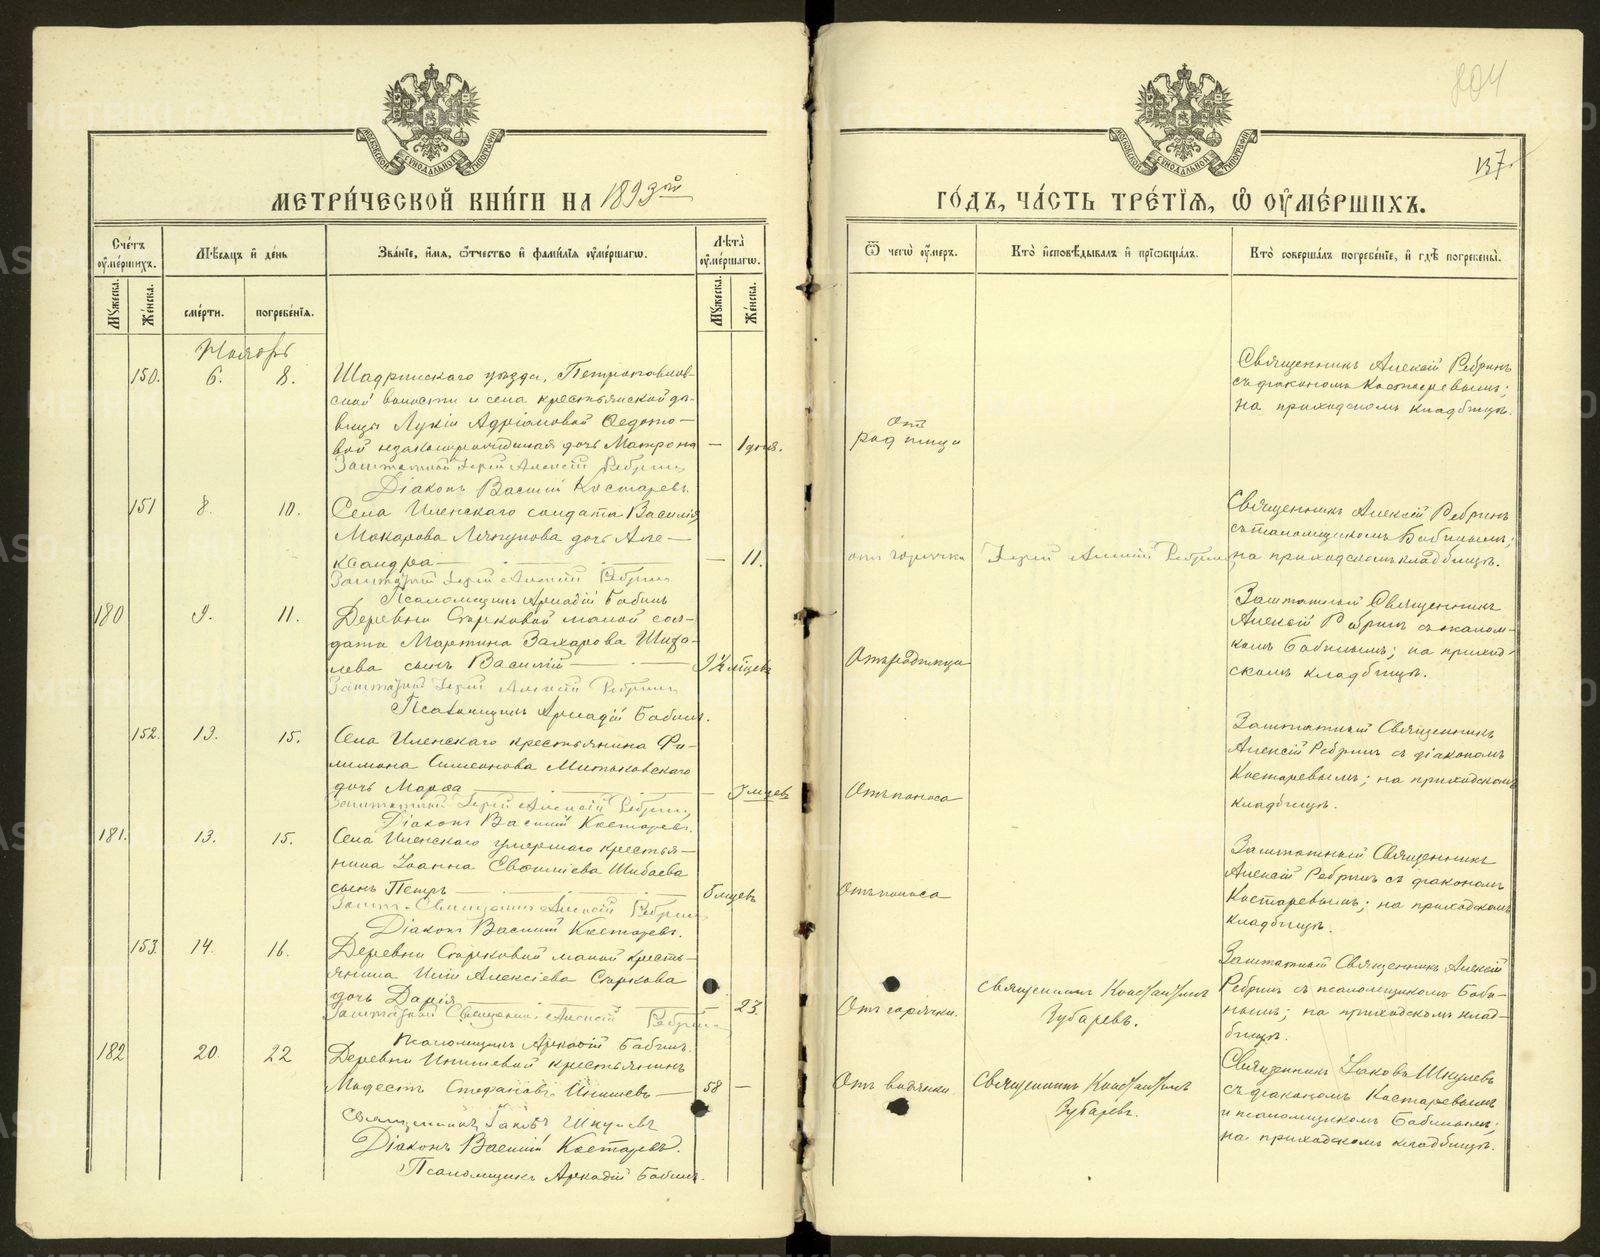 804
137
МЕТРИ́ЧЕСКОЙ КНИ́ГИ НА 1893ой
ГО́ДЪ, ЧА́СТЬ ТРЕ́ТЇЯ, Ѿ ОУМЕ́РШИХЪ.
Сче́тъ оумершихъ.
Мужеска.
Женска.
Мѣсяцъ и день
смерти.
погребенїя.
Званїе, имя, отчество и фамилїя оумершагѡ.
Лѣта оумершагѡ.
Мужеска.
Женска.
Ѿ чегѡ оумеръ.
Кто исповѣдывалъ и прїобщалъ.
Кто совершалъ погребенїе, и гдѣ погребены.
Ноябрь
150. 6. 8. Шадринскаго уѣзда, Петропавлов-
ской волости и села крестьянской дѣ-
вицы Лукіи Адріановой Ѳедото-
вой незаконнорожденная дочь Матрона — 1 дня.
Заштатный Іерей Алексій Ребринъ
Діаконъ Василій Костаревъ.
отъ
родимца
Священникъ Алексій Ребринъ
съ діакономъ Костаревымъ;
на приходскомъ кладбищѣ.
151 8. 10. Села Иленскаго солдата Василія
Макарова Ляпунова дочь Але-
ксандра — 11.
Заштатный Іерей Алексій Ребринъ
Псаломщикъ Аркадій Бабинъ
отъ горячки
Іерей Алексій Ребринъ
Священникъ Алексій Ребринъ
съ псаломщикомъ Бабинымъ;
на приходскомъ кладбищѣ.
180 9. 11. Деревни Старковой малой сол-
дата Мартина Захарова Шипо-
лева сынъ Василій — 9½ мѣсцевъ
Заштатный Іерей Алексій Ребринъ
Псаломщикъ Аркадій Бабинъ.
Отъ родимца
Заштатный Священникъ
Алексій Ребринъ съ псалом-
комъ Бабинымъ; на приход-
скомъ кладбищѣ.
152. 13. 15. Села Иленскаго крестьянина Фи-
лимона Симеонова Митьковскаго
дочь Марѳа — мѣсцевъ
Заштатный Іерей Алексій Ребринъ
Діаконъ Василій Костаревъ.
Отъ поноса
Заштатный Священникъ
Алексій Ребринъ съ діакономъ
Костаревымъ; на приходскомъ
кладбищѣ.
181. 13. 15. Села Иленскаго умершаго крестья-
нина Іоанна Евѳиміева Шибаева
сынъ Петръ — 5 мѣсцевъ
Зашт. Священникъ Алексій Ребринъ
Діаконъ Василій Костаревъ.
Отъ поноса
Заштатный Священникъ
Алексій Ребринъ съ діакономъ
Костаревымъ; на приходскомъ
кладбищѣ.
153. 14. 16. Деревни Старковой малой кресть-
янина Иліи Алексіева Старкова
дочь Дарія — 23.
Заштатный Священникъ Алексій Ребринъ
Псаломщикъ Аркадій Бабинъ.
Отъ горячки.
Священникъ Константинъ
Зубаревъ.
Заштатный Священникъ Алексій
Ребринъ съ псаломщикомъ Баби-
нымъ; на приходскомъ клад-
бищѣ.
182 20. 22 Деревни Инишевой крестьянинъ
Модестъ Стефановъ Инишевъ — 58 —
Священникъ Іаковъ Шкулевъ
Діаконъ Василій Костаревъ.
Псаломщикъ Аркадій Бабинъ.
Отъ водянки.
Священникъ Константинъ
Зубаревъ.
Священникъ Іаковъ Шкулевъ
съ діакономъ Костаревымъ
и псаломщикомъ Бабинымъ;
на приходскомъ кладбищѣ.